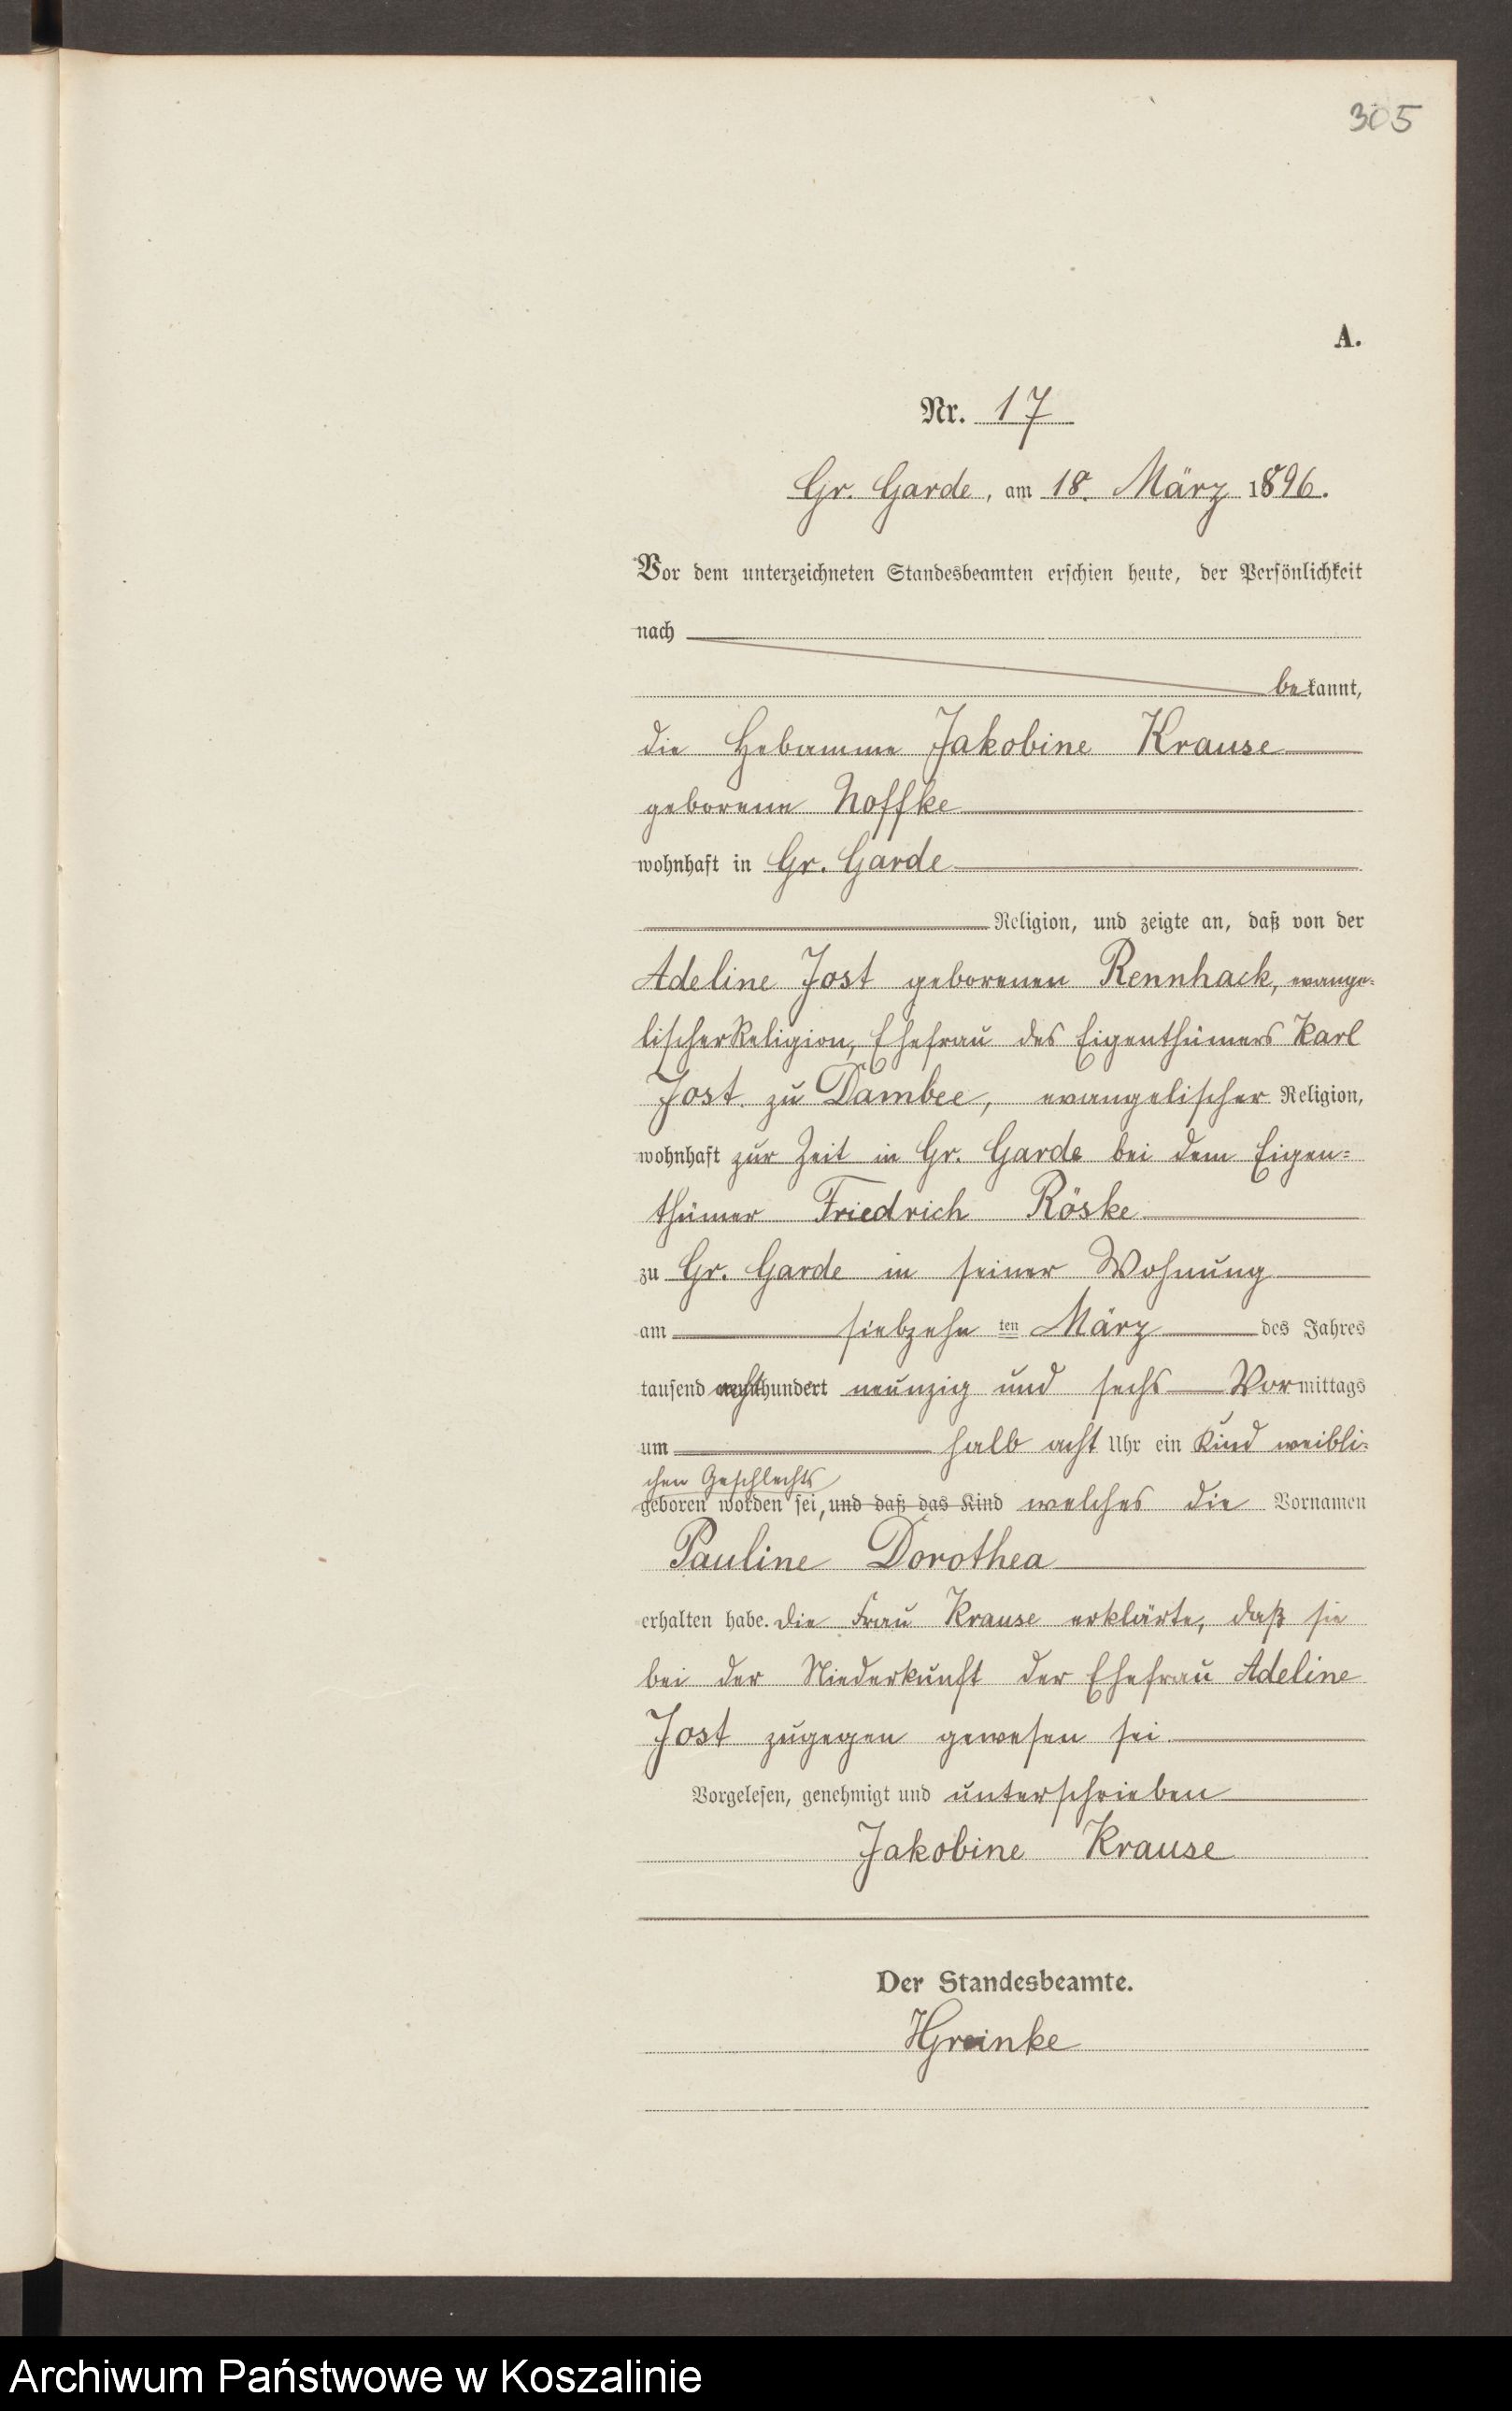 305
A.
Nr. 17
Gr. Garde, am 18. März 1896.
Vor dem unterzeichneten Standesbeamten erschien heute, der Persönlichkeit
nach
bekannt,
die Hebamme Jakobine Krause
geborene Noffke
wohnhaft in Gr. Garde
Religion, und zeigte an, daß von der
Adeline Jost geborenen Rennhack, evange-
lischer Religion, Ehefrau des Eigenthümers Karl
Jost zu Dambee, evangelischer Religion,
wohnhaft zur Zeit in Gr. Garde bei dem Eigen-
thümer Friedrich Röske
zu Gr. Garde in seiner Wohnung
am siebzehnten März des Jahres
tausend achthundert neunzig und sechs Vormittags
um halb acht Uhr ein Kind weibli-
chen Geschlechts
geboren worden sei, und daß das Kind welches die Vornamen
Pauline Dorothea
erhalten habe. Die Frau Krause erklärte, daß sie
bei der Niederkunft der Ehefrau Adeline
Jost zugegen gewesen sei.
Vorgelesen, genehmigt und unterschrieben
Jakobine Krause
Der Standesbeamte.
HGreinke
Archiwum Państwowe w Koszalinie